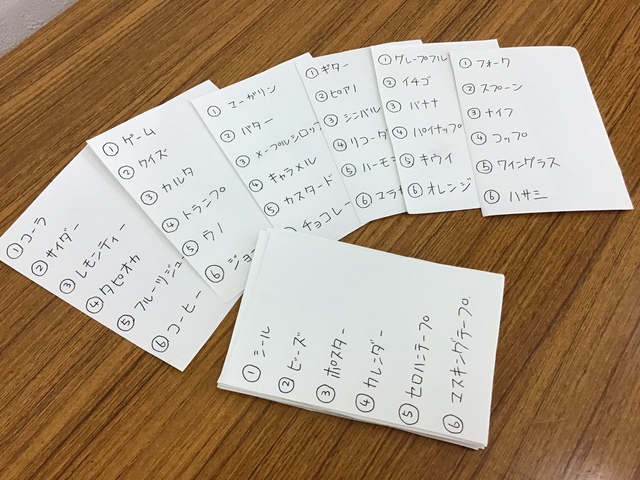 ①コーラ
②サイダー
③レモンティー
④タピオカ
⑤フルーツジュ
⑥コーヒー
①ゲーム
②クイズ
③カルタ
④トランプ
⑤ウノ
⑥ジョ
①マーガリン
②バター
③メープルシロップ
④キャラメル
⑤カスタード
チョコレー
①ギター
②ピアノ
③シンバル
④リコーダ
⑤ハーモ
⑥マラカ
①グレープフル
②イチゴ
③バナナ
④パイナップ
⑤キウイ
⑥オレンジ
①フォーク
②スプーン
③ナイフ
④コップ
⑤ワイングラス
⑥ハサミ
①シール
②ビーズ
③ポスター
④カレンダー
⑤セロハンテープ
⑥マスキングテープ